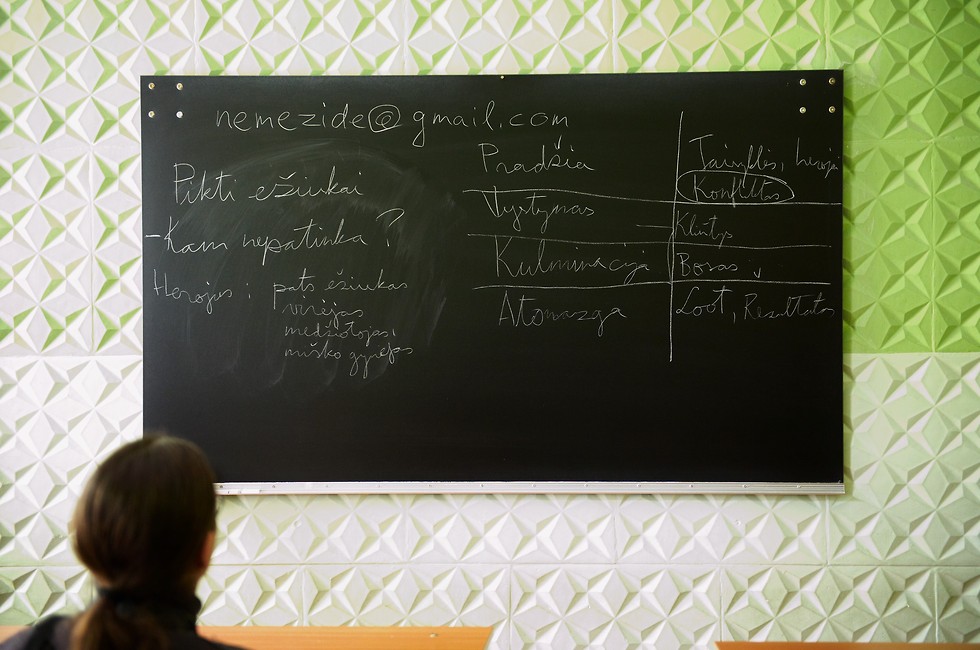 nemezide@gmail.com
Pikti ežiukai
-Kam nepatinka?
Herojus: pats ežiukas
virėjas
medžiotojas,
miško gyvėjas
Pradžia
Taisyklės, herojai
Konfliktas
Vystymas
Kliūtys
Kulminacija
Bosas
Atomazga
Loot, Rezultatas